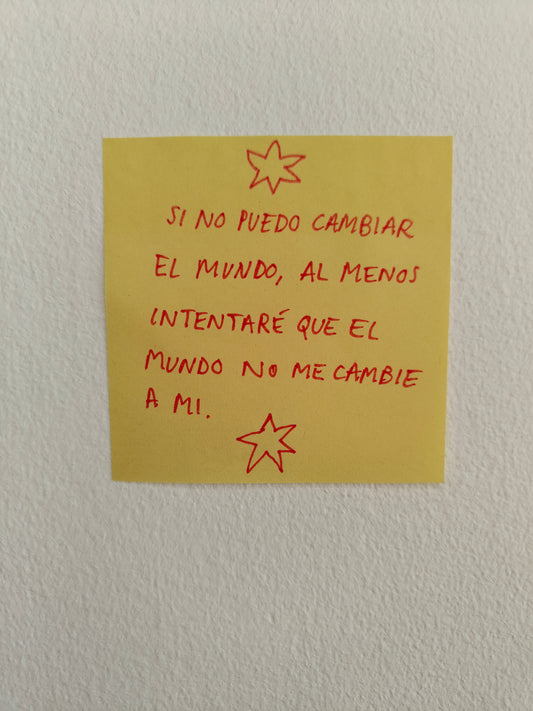 SI NO PUEDO CAMBIAR
EL MUNDO, AL MENOS
INTENTARÉ QUE EL
MUNDO NO ME CAMBIE
A MI.